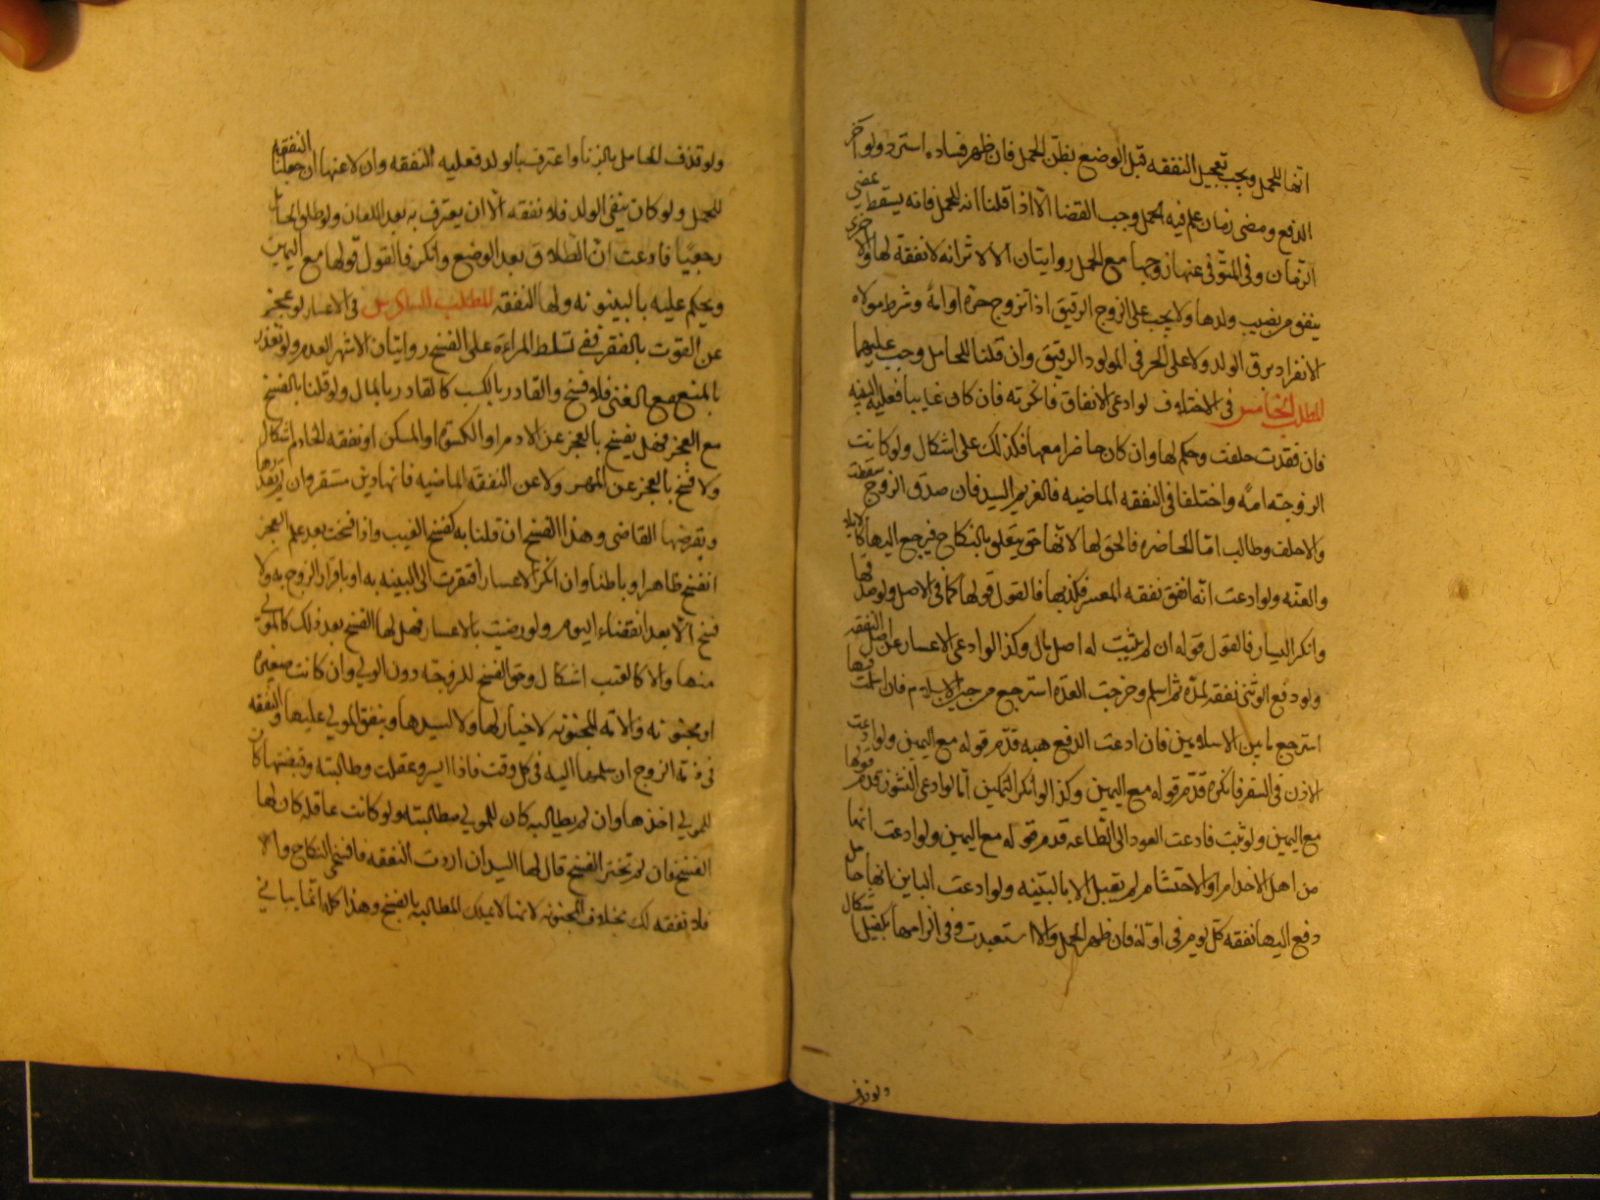 انها للحمل ويجب تعجيل النفقه قبل الوضع بظن الحمل فان ظهر فساده استرد ولو اخر
الدفع ومضى زمان علم فيه الحمل وجب القضا الا اذا قلنا انه للحمل فانه يسقط بمضى
الزمان وفى المتوفى عنها زوجها مع الحمل روايتان الا لاثرانه لا نفقة لها والاخرى
ينفق من نصيب ولدها ولا يجب على الزوج الرقيق اذا تزوج حرة او امة وشرط مولاه
الانفراد برق الولد ولا على الحر فى المولود الرقيق وان قلنا للحامل وجب عليهما
المطلب الخامس فى الاختلاف لو ادعى الانفاق فانكرته فان كان غايبا فعليه البينه
فان فقدت حلفت وحكم لها وان كان حاضرا معها فكذلك على اشكال ولو كانت
الزوجته امة واختلفا فى النفقه الماضيه فالغريم السيد فان صدق الزوج سقطت
والا حلف وطالب اما الحاضره فالحق لها لانها حق يتعلق بالنكاح فيرجع اليها كالايلا
والعنه ولو ادعت انه انفق نفقه المعسر فكذبها فالقول قولها كما فى الاصل ولو صدقها
وانكر اليسار فالقول قوله ان لم يثبت له اصل مال وكذا لو ادعى الاعسار عن اصل النفقه
ولو دفع الوثنى نفقه لمدة ثم اسلم وخرجت العدة استرجع من حين الاسلام فان اسلمت فيها
استرجع ما بين الاسلامين فان ادعت الدفع هبه قدم قوله مع اليمين ولو ادعت
الاذن فى السفر فانكره قدم قوله مع اليمين وكذا لو انكر التمكين اما لو ادعى النشوز قدم قولها
مع اليمين ولو ثبت فادعت العود الى الطاعه قدم قوله مع اليمين ولو ادعت انها
من اهل الاخدام او الاحتشام لم يقبل الا بالبينه ولو ادعت الباين انها حامل
دفع اليها نفقه كل يوم فى اوله فان ظهر الحمل والا استعيدت وفى الزامها بكفيل اشكال
ولو قذف
ولو قذف الحامل بالزنا واعترف بالولد فعليه النفقه وان لاعنها ان جعلنا النفقه
للحمل ولو كان بنفى الولد فلا نفقه الا ان يعترف به بعد اللعان ولو طلق الحامل
رجعيا فادعت ان الطلاق بعد الوضع وانكر فالقول قولها مع اليمين
ويحكم عليه بالبينونه ولها النفقه المطلب السادس فى الاعسار لو عجز
عن القوت بالفقر ففى تسلط المراءة على الفسخ روايتان الاشهر العدم ولو تعذر
بالمنع مع الغنى فلا فسخ والقادر بالكسب كالقادر بالمال ولو قلنا بالفسخ
مع العجز فهل يفسخ بالعجز عن الادم او الكسوة او المسكن او نفقه الخادم اشكال
ولا فسخ بالعجز عن المهر ولا عن النفقه الماضيه فانها دين مستقر وان لم يقدرها
ويفرضها القاضى وهذا الفسخ ان قلنا به كفسخ العيب واذا فسخت بعد علم العجز
انفسخ ظاهرا وباطنا وان انكر الاعسار افتقرت الى البينه به او باقرار الزوج به ولا
فسخ الا بعد انقضاء اليوم ولو رضيت بالاعسار فهل لها الفسخ بعد ذلك كالمولى
منها والا كالعنت اشكال وحق الفسخ للزوجه دون الولى وان كانت صغيرة
او مجنونه والامه المجنونه لا خيار لها ولا لسيدها وينفق المولى عليها والنفقه
فى ذمة الزوج ان سلمها اليه فى كل وقت فاذا ايسر وعقلت وطالبته وقبضتها كان
للمولى اخذها وان لم يطالبه كان للمولى مطالبته ولو كانت عاقله كان لها
الفسخ فان لم تختر الفسخ قال لها السيد ان اردت النفقه فافسخى النكاح والا
فلا نفقه لك بخلاف المجنونه لانها لا يمكن المطالبه بالفسخ وهذا كله انما ياتى